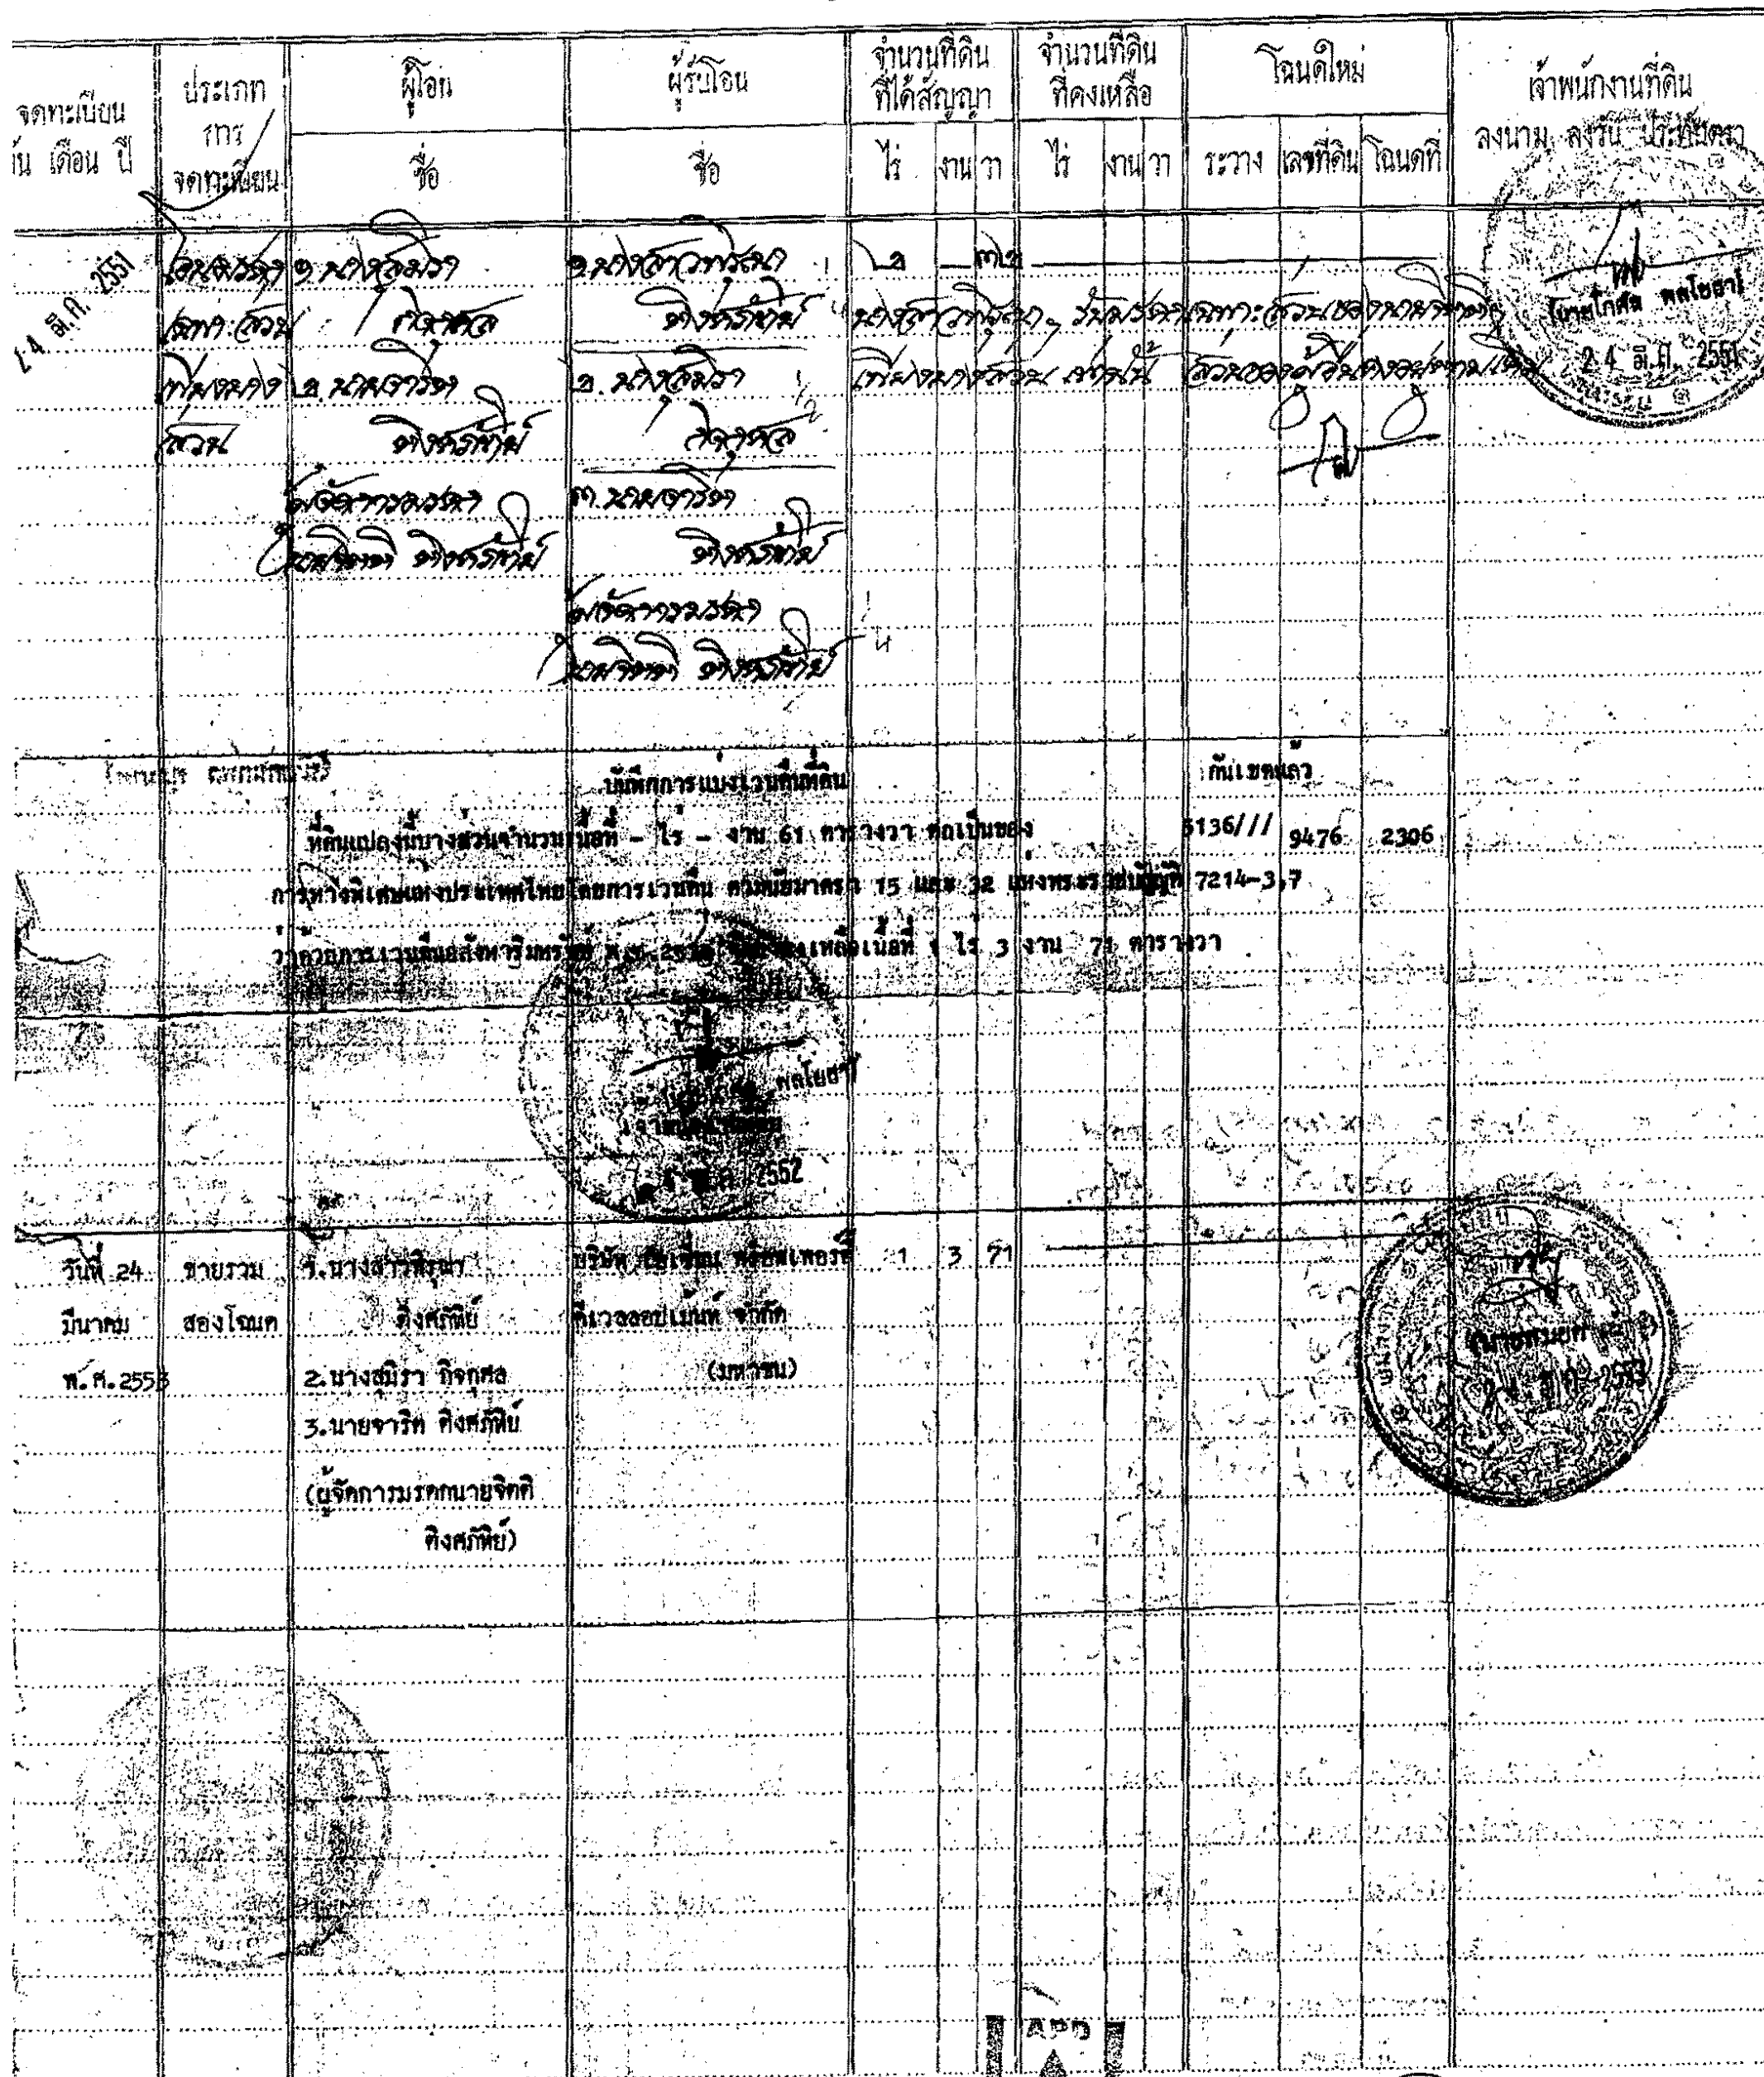 จดทะเบียน
วัน เดือน ปี
ประเภท
การ
จดทะเบียน
ผู้โอน
ชื่อ
ผู้รับโอน
ชื่อ
จำนวนที่ดิน
ที่ได้สัญญา
ไร่ งาน วา
จำนวนที่ดิน
ที่คงเหลือ
ไร่ งาน วา
โฉนดใหม่
ระวาง เลขที่ดิน โฉนดที่
เจ้าพนักงานที่ดิน
ลงนาม ลงวัน ประทับตรา
24 มี.ค. 2551
โอนมรดก
เฉพาะส่วน
เพียงบาง
ส่วน
๑ นางสุมิรา
กิจกุศล
๒ นายจาริต
ติงศภัทิย์
ผู้จัดการมรดก
นายจิตติ ติงศภัทิย์
๑ นางสาวพิรุณา
ติงศภัทิย์
๒. นางสุมิรา
กิจกุศล
๓. นายจาริต
ติงศภัทิย์
ผู้จัดการมรดก
นายจิตติ ติงศภัทิย์
๒ — ๓๒
นางสาวพิรุณาฯ รับมรดกเฉพาะส่วนของนายจิตติฯ
เพียงบางส่วน เท่านั้น ส่วนของผู้อื่นคงอยู่ตามเดิม
(นายโกศล พลโยธา)
24 มี.ค. 2551
บันทึกการแบ่งเวนคืนที่ดิน
กันเขตแล้ว
ที่ดินแปลงนี้บางส่วนจำนวนเนื้อที่ - ไร่ - งาน 61 ตารางวา ตกเป็นของ 5136/// 9476 2306
การทางพิเศษแห่งประเทศไทยโดยการเวนคืน ตามนัยมาตรา 15 และ 32 แห่งพระราชบัญญัติ 7214-3,7
ว่าด้วยการเวนคืนอสังหาริมทรัพย์ พ.ศ. เหลือเนื้อที่ 1 ไร่ 3 งาน 71 ตารางวา
พลโยธา)
2552
วันที่ 24
มีนาคม
พ.ศ.2553
ขายรวม
สองโฉนด
1.นางสาวพิรุณา
ติงศภัทิย์
2.นางสุมิรา กิจกุศล
3.นายจาริต ติงศภัทิย์
(ผู้จัดการมรดกนายจิตติ
ติงศภัทิย์)
บริษัท เอเชี่ยน พร็อพเพอร์ตี้
ดีเวลลอปเม้นท์ จำกัด
(มหาชน)
1 3 71
2553